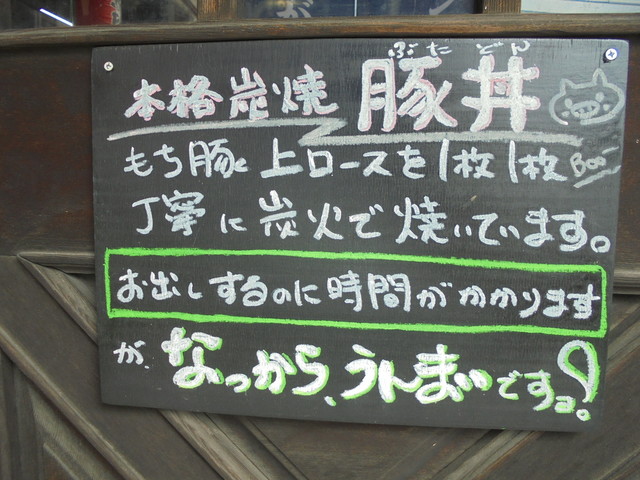 ぶたどん
本格炭焼 豚丼
もち豚 上ロースを1枚1枚 Boo!
丁寧に炭火で焼いています。
お出しするのに時間がかかります
が、なっから、うんまいですョ!